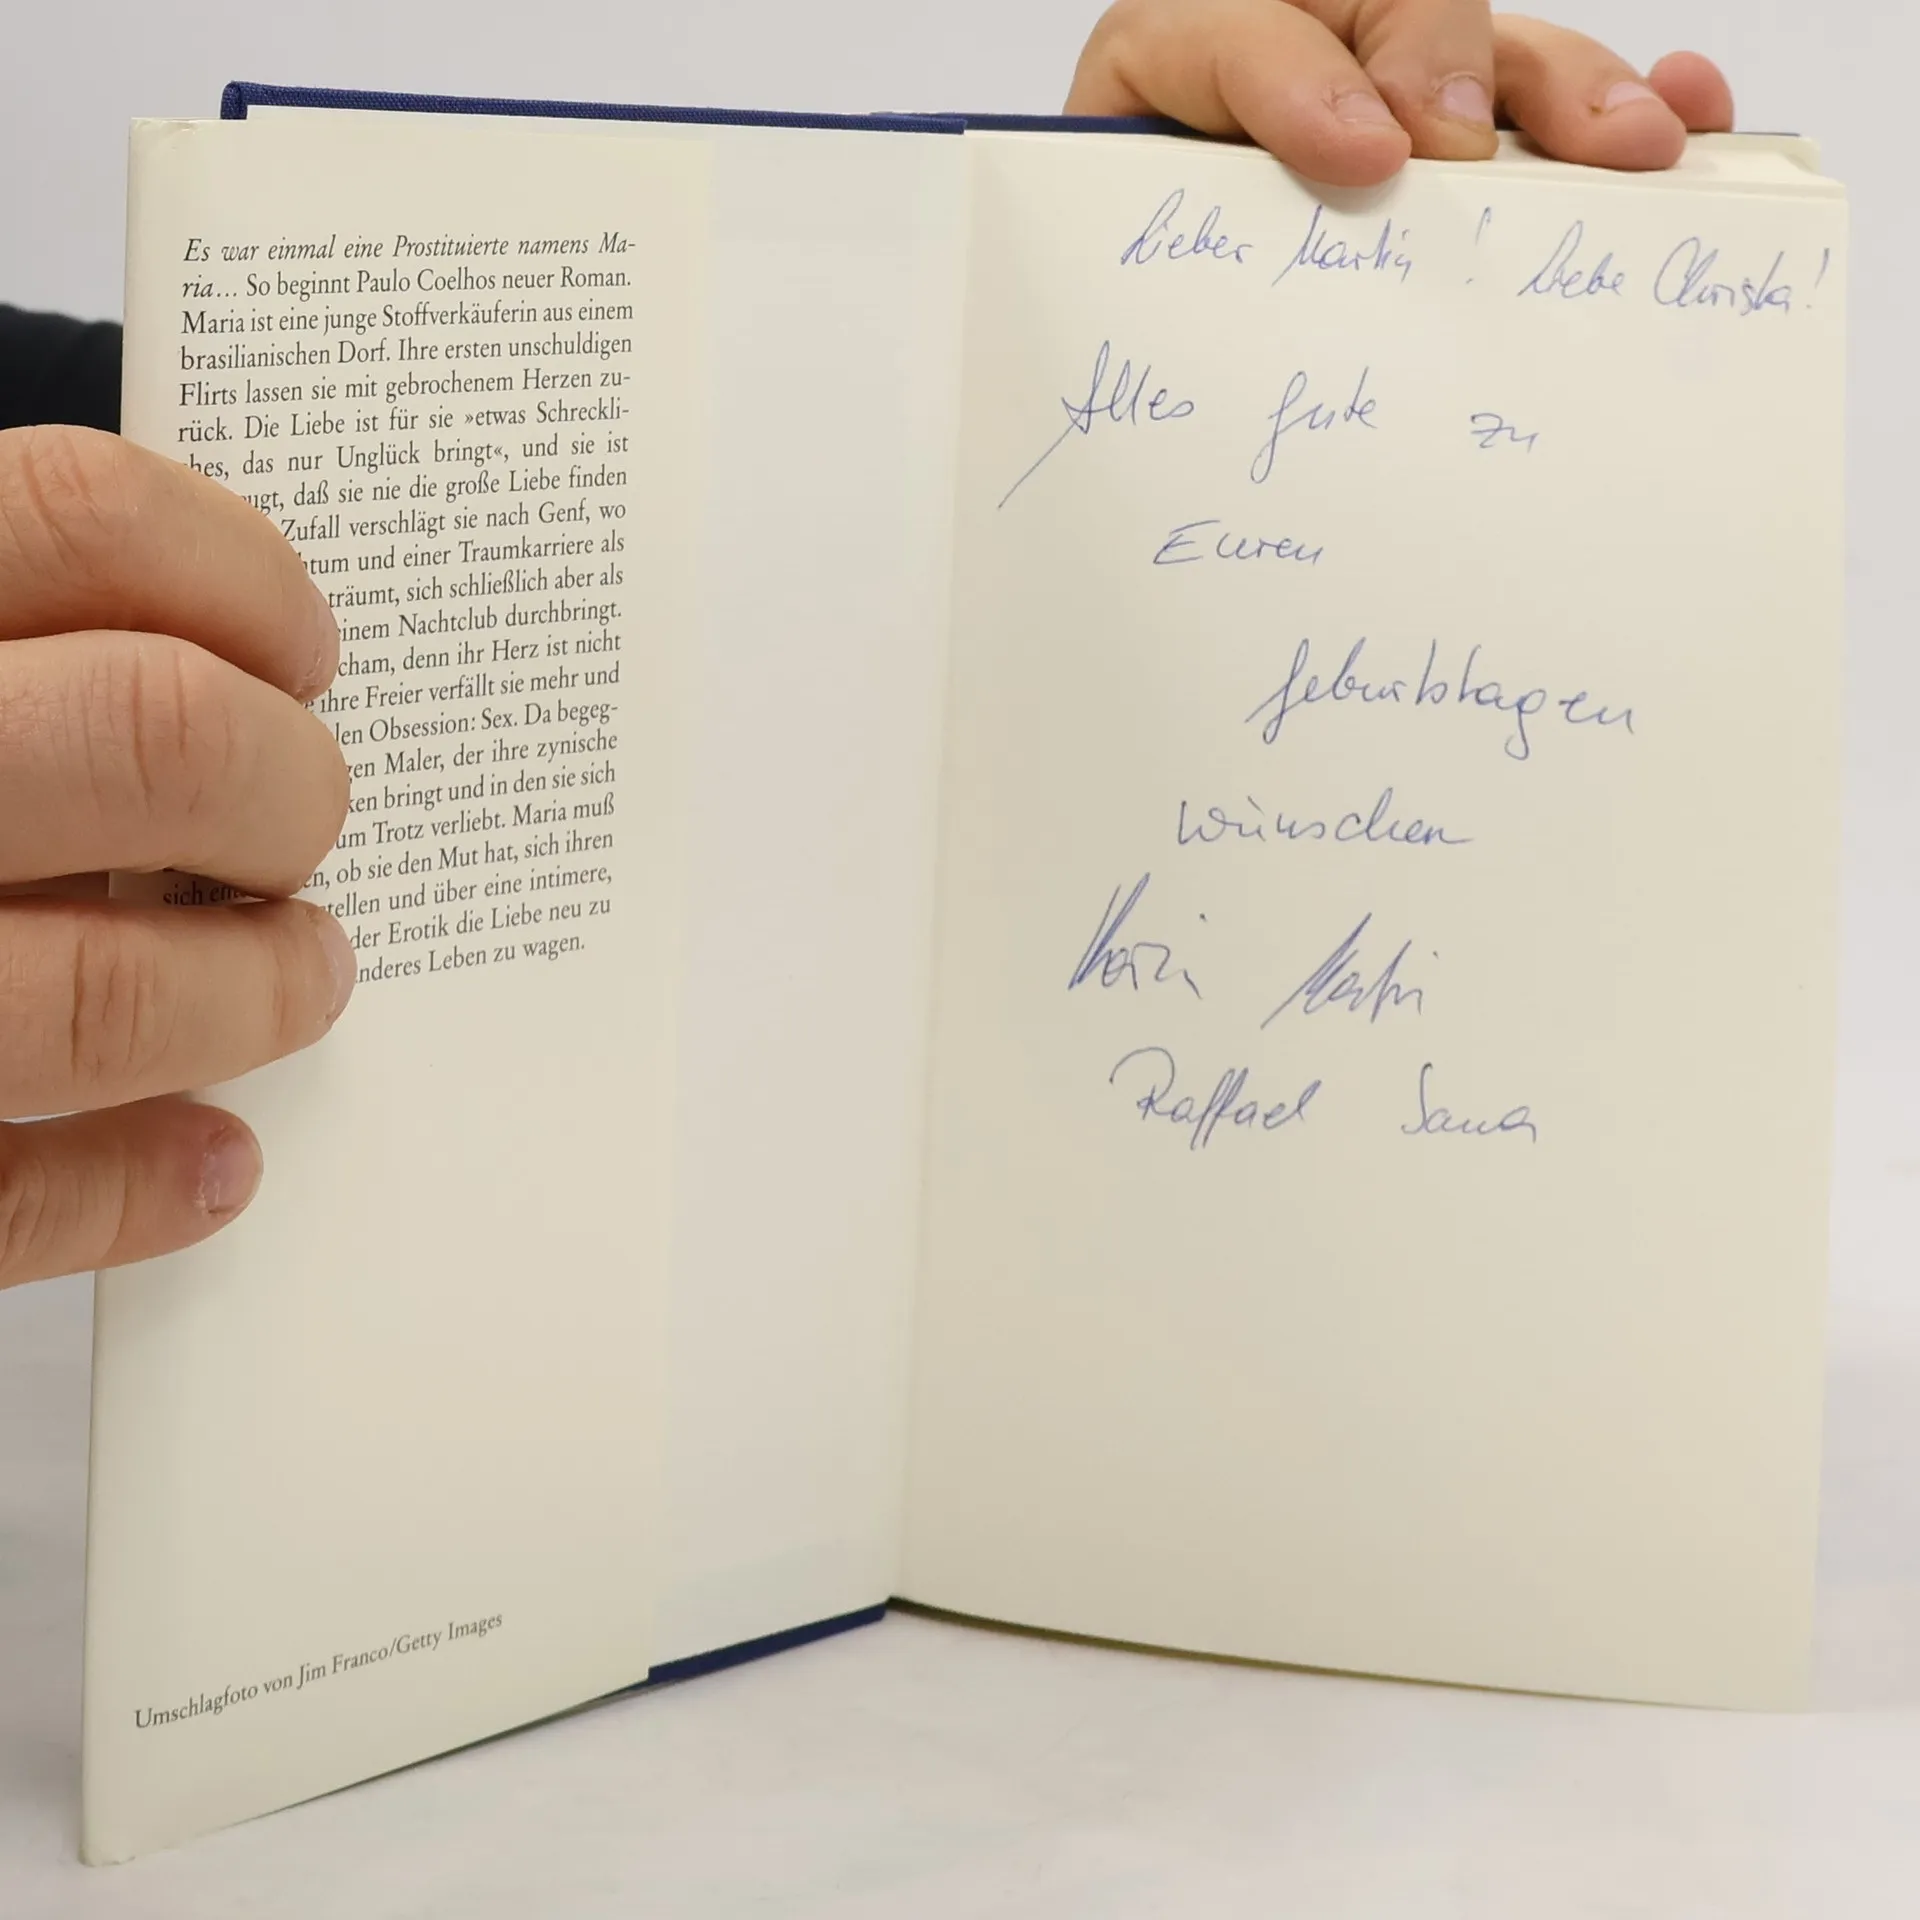 Es war einmal eine Prostituierte namens Ma-
ria... So beginnt Paulo Coelhos neuer Roman.
Maria ist eine junge Stoffverkäuferin aus einem
brasilianischen Dorf. Ihre ersten unschuldigen
Flirts lassen sie mit gebrochenem Herzen zu-
rück. Die Liebe ist für sie »etwas Schreckli-
hes, das nur Unglück bringt«, und sie ist
ugt, daß sie nie die große Liebe finden
Zufall verschlägt sie nach Genf, wo
tum und einer Traumkarriere als
träumt, sich schließlich aber als
einem Nachtclub durchbringt.
cham, denn ihr Herz ist nicht
ihre Freier verfällt sie mehr und
len Obsession: Sex. Da begeg-
gen Maler, der ihre zynische
ken bringt und in den sie sich
um Trotz verliebt. Maria muß
sich en, ob sie den Mut hat, sich ihren
tellen und über eine intimere,
der Erotik die Liebe neu zu
nderes Leben zu wagen.
Umschlagfoto von Jim Franco/Getty Images
Lieber Martin! Liebe Christa!
Alles Gute zu
Euren
Geburtstagen
wünschen
Martin
Raffael